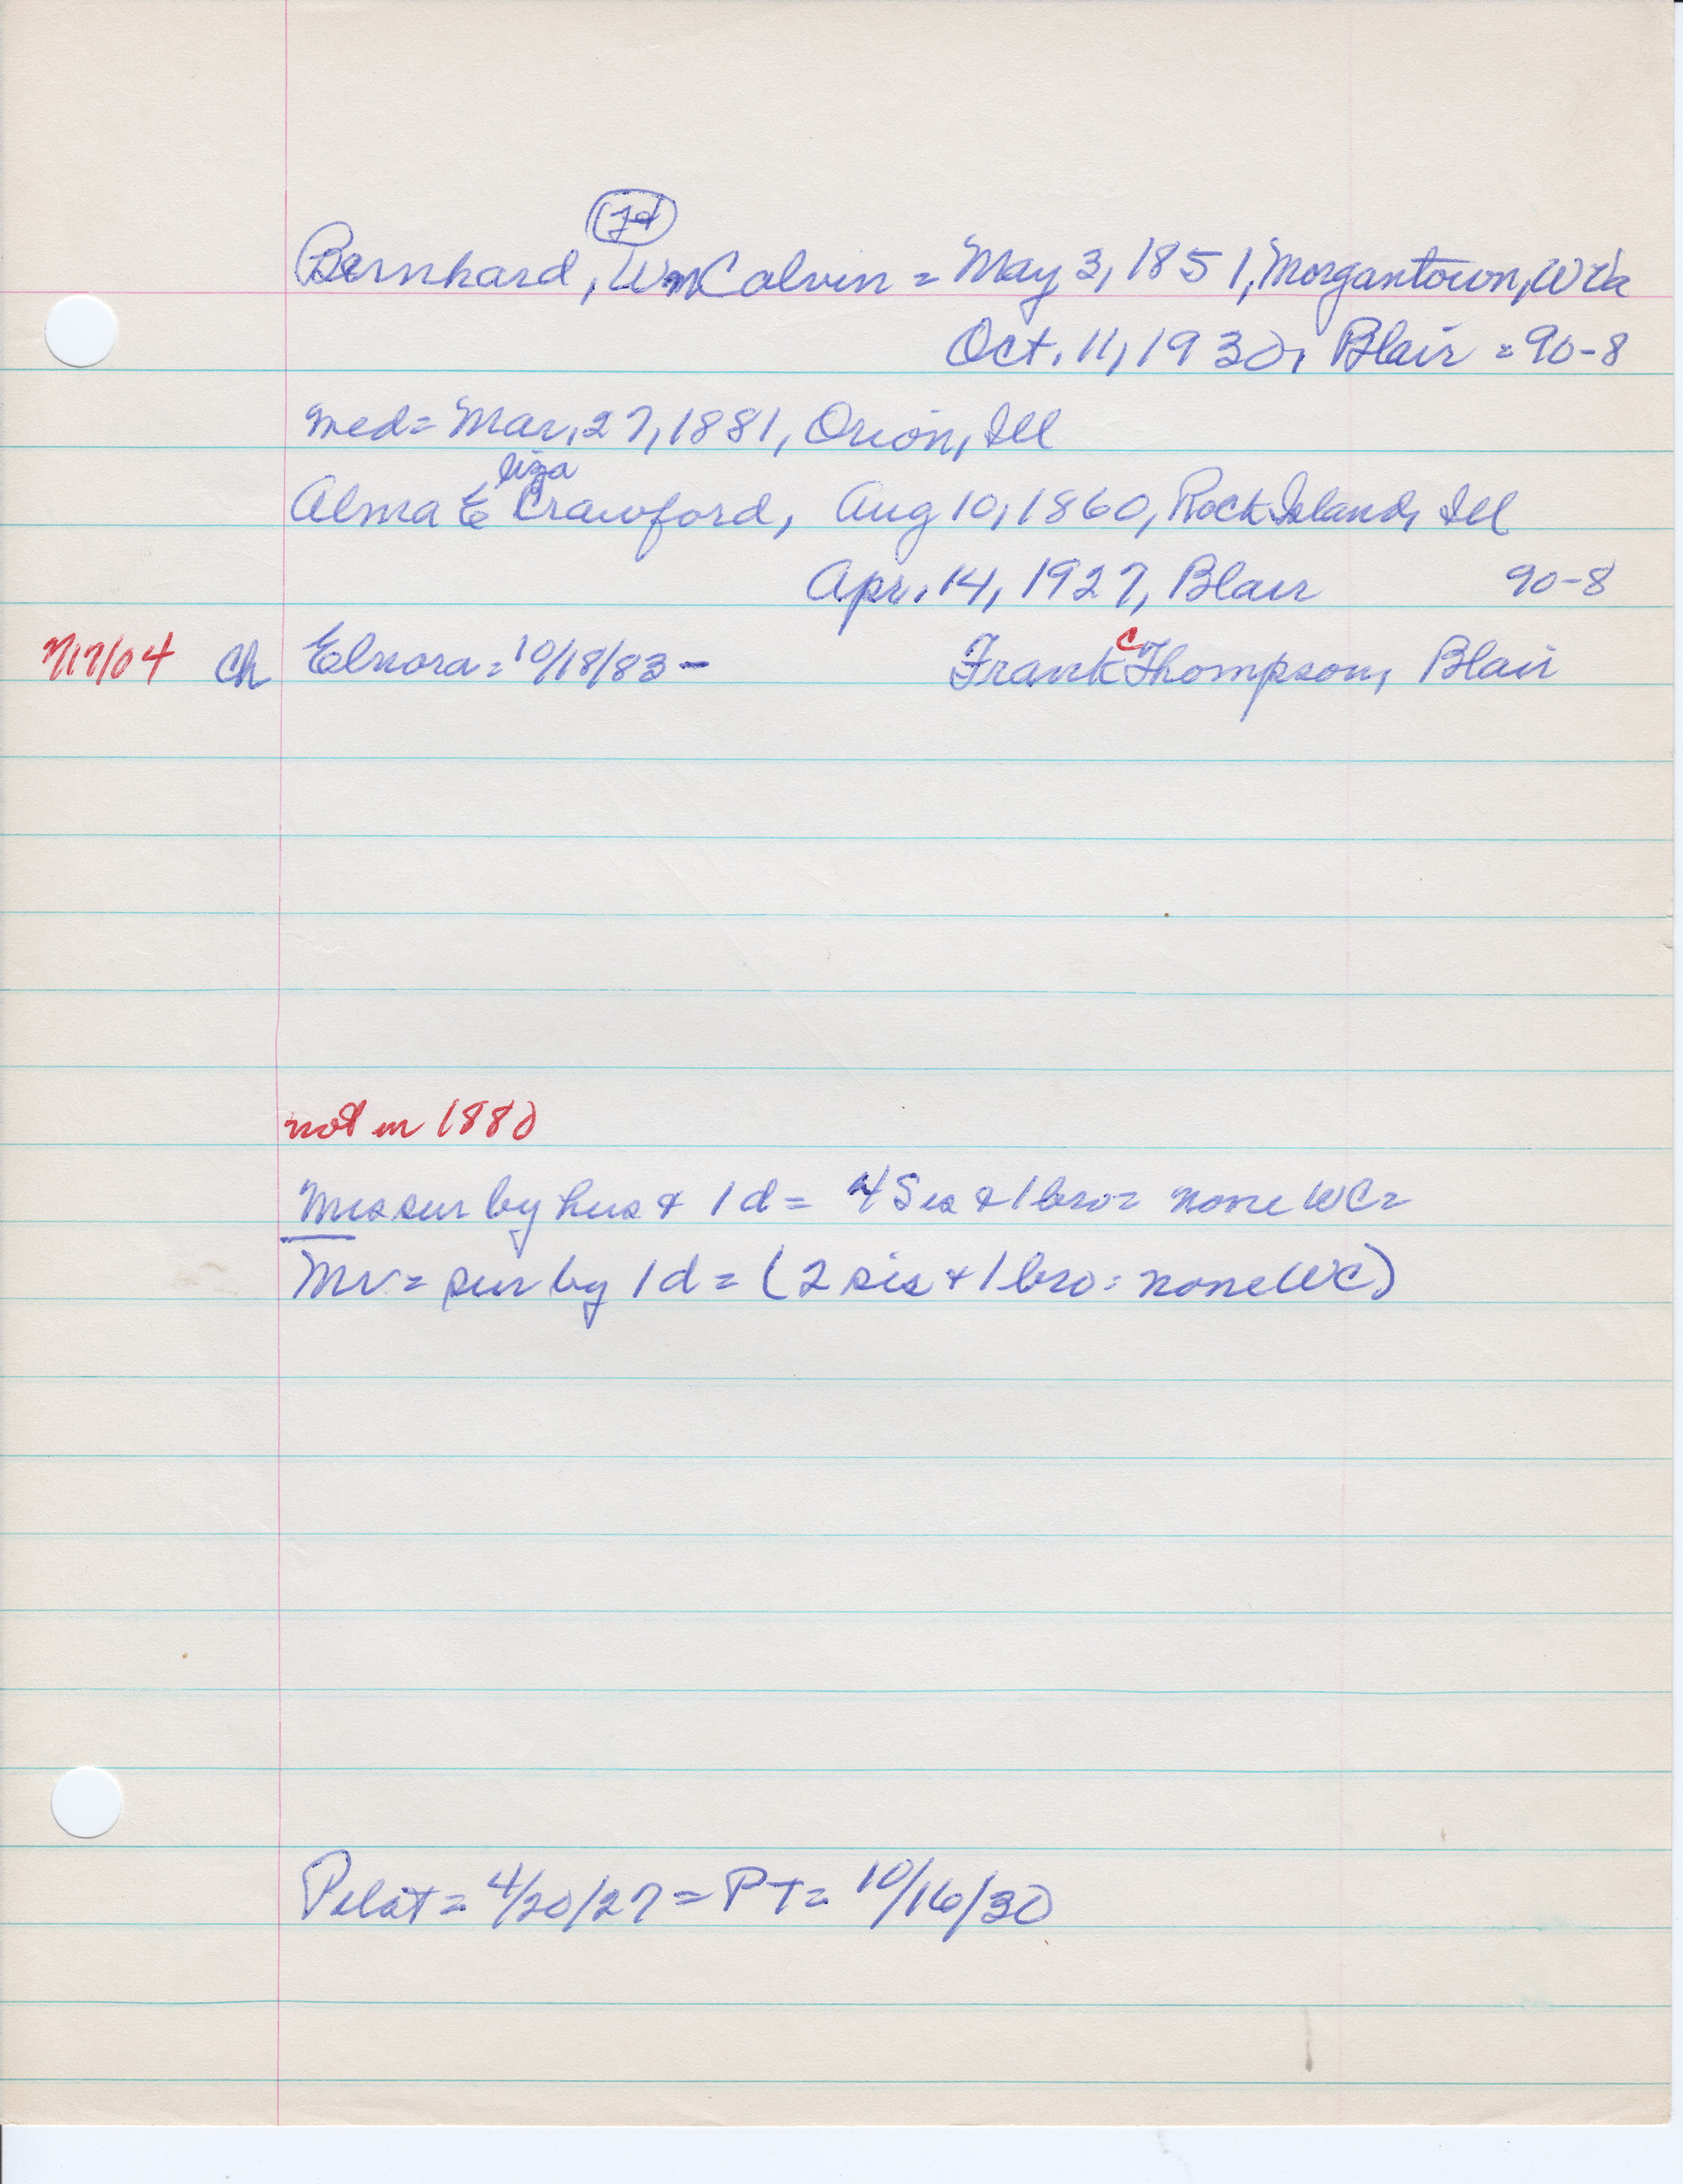 Bernhard, Wm Calvin = May 3, 1851, Morgantown, W Va
Oct. 11, 1930, Blair = 90-8
med = Mar. 27, 1881, Orion, Ill
liza
Alma E Crawford, Aug 10, 1860, Rock Island, Ill
Apr. 14, 1927, Blair 90-8
7/17/04 Ch Elnora = 10/18/83 - Frank C Thompson, Blair
not in 1880
Mrs sur by hus & 1 d = 4 Sis & 1 bro = none WC =
Mr = sur by 1 d = (2 sis & 1 bro = none WC)
Pilot = 4/20/27 = PT = 10/16/30